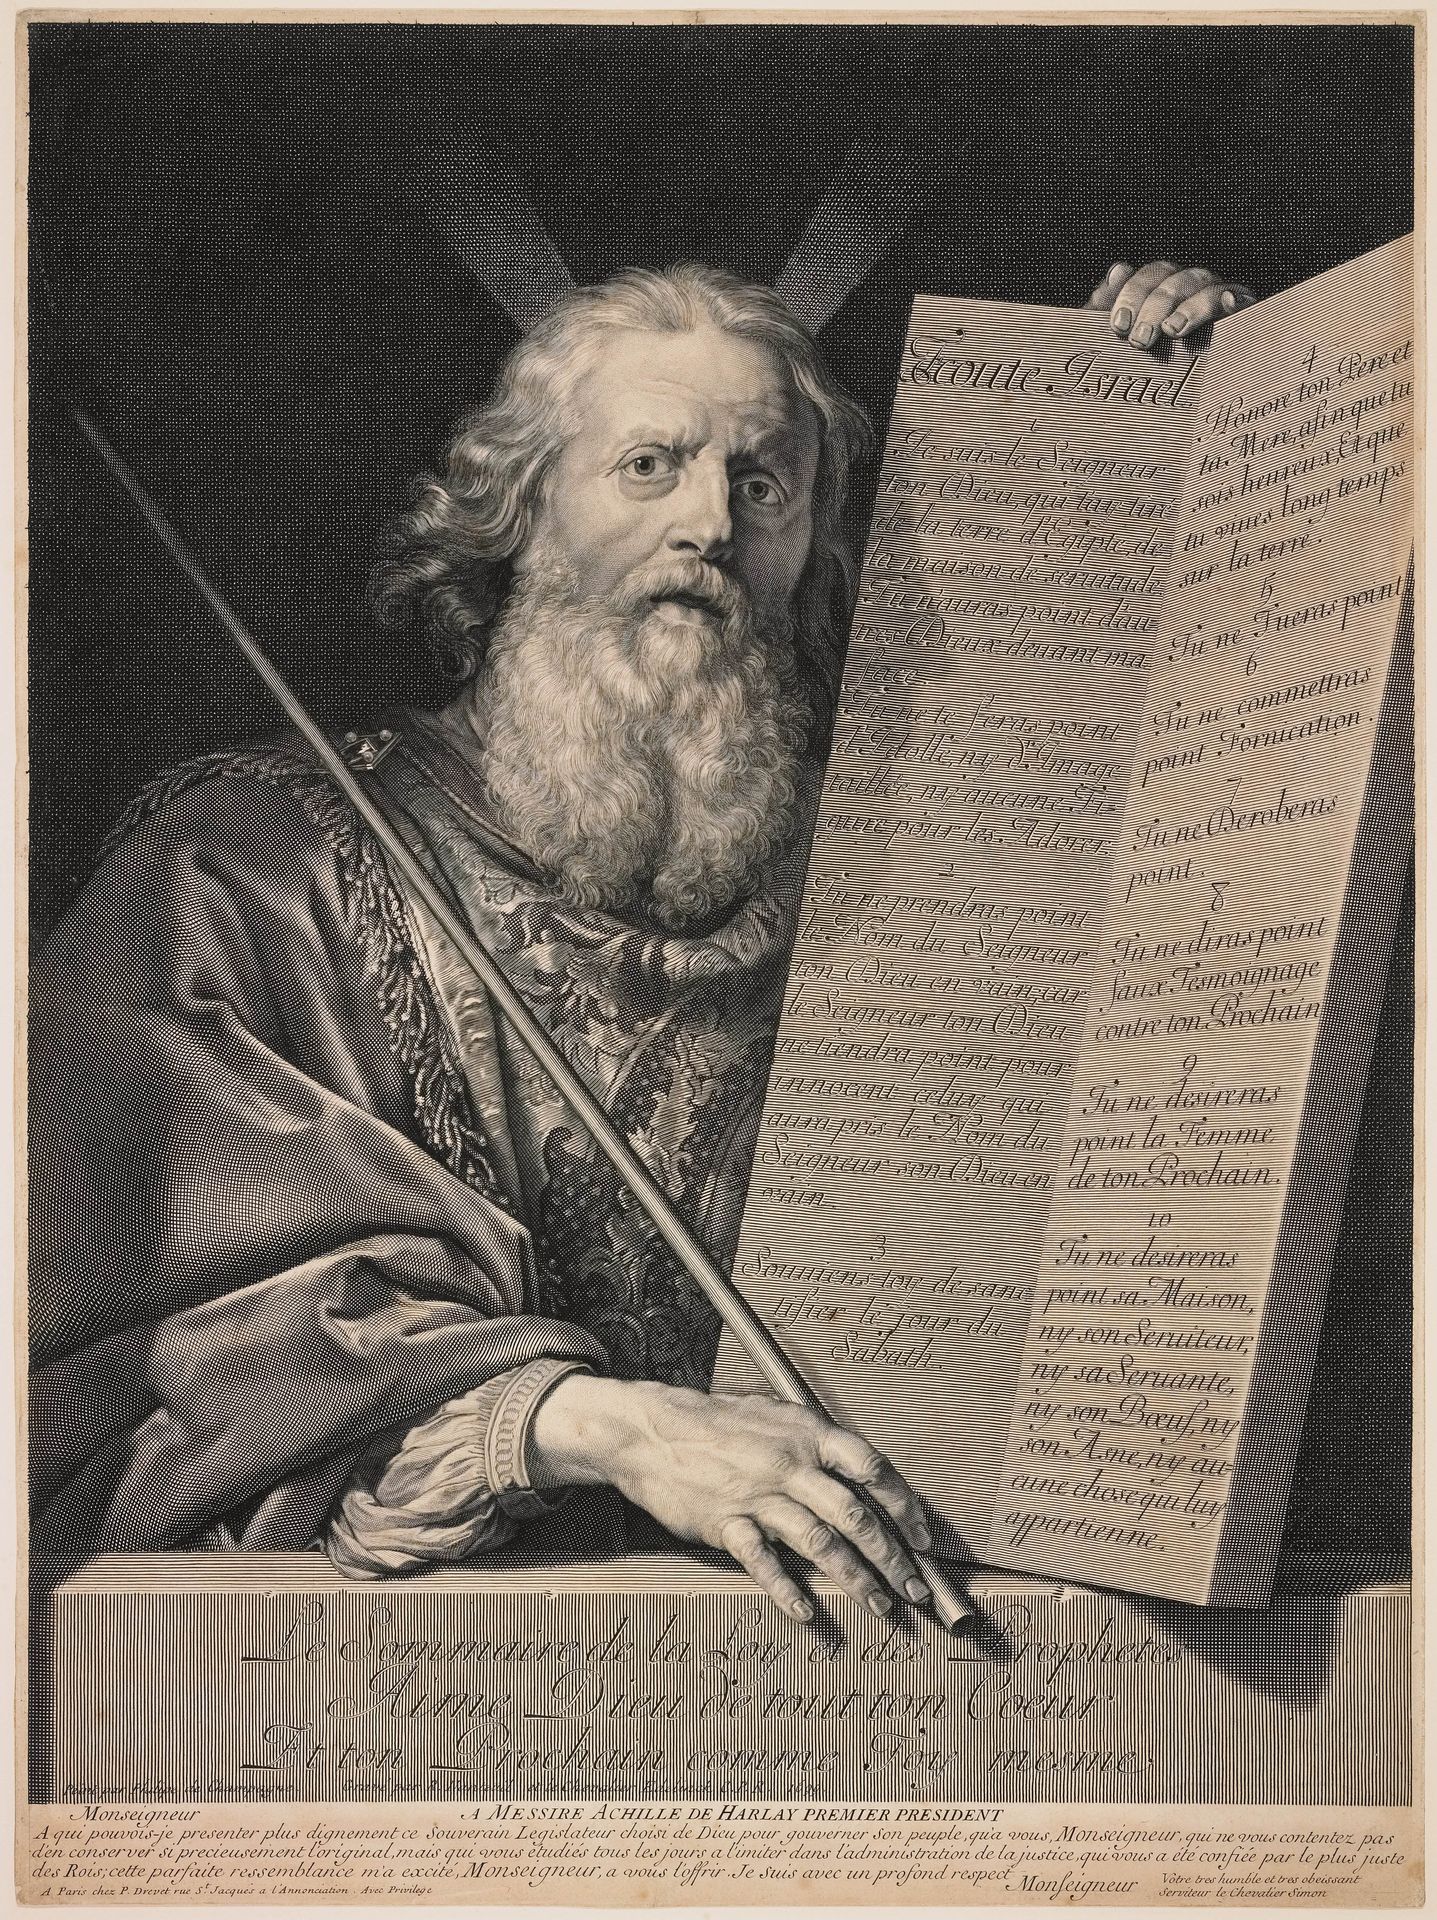 Ecoute Israel
1
Je suis le Seigneur
ton Dieu, qui t'ay tiré
de la terre d'Egipte de
la maison de seruitude
Tu n'auras point d'au
tres Dieux deuant ma
face.
Tu ne te feras point
d'Idolle, ny d'Image
taillée, ny aucune Fi-
gure pour les Adorer.
2
Tu ne prendras point
le Nom du Seigneur
ton Dieu en vain, car
le Seigneur ton Dieu
ne tiendra point pour
innocent celuy qui
aura pris le Nom du
Seigneur son Dieu en
vain.
3
Souuiens toy de sanc
tifier le jour du
Sabath.
4
Honore ton Pere et
ta Mere, afin que tu
sois heureux, Et que
tu viues long temps
sur la terre.
5
Tu ne Tueras point
6
Tu ne commettras
point Fornication.
7
Tu ne Deroberas
point.
8
Tu ne diras point
faux Tesmoignage
contre ton Prochain
9
Tu ne desireras
point la Femme
de ton Prochain.
10
Tu ne desireras
point sa Maison,
ny son Seruiteur,
ny sa Seruante,
ny son Bœuf, ny
son Asne, ny au-
cune chose qui luy
appartienne.
Le Sommaire de la Loy et des Prophetes
Aime Dieu de tout ton Cœur
Et ton Prochain comme Toy mesme.
Peint par Philipe de Champagne. Gravé par R. Nanteüil et le Chevalier Edelinck C.P.R. 1699
Monseigneur A MESSIRE ACHILLE DE HARLAY PREMIER PRESIDENT
A qui pouvois-je presenter plus dignement ce Souverain Legislateur choisi de Dieu pour gouverner son peuple, qu'a vous, Monseigneur, qui ne vous contentez pas
d'en conserver si precieusement l'original, mais qui vous étudiés tous les jours a l'imiter dans l'administration de la justice, qui vous a été confiée par le plus juste
des Rois; cette parfaite ressemblance m'a excité, Monseigneur, a vous l'offrir. Je suis avec un profond respect Monseigneur
Vôtre tres humble et tres obeissant
Serviteur le Chevalier Simon
A Paris chez P. Drevet rue St. Jacques a l'Annonciation. Avec Privilege